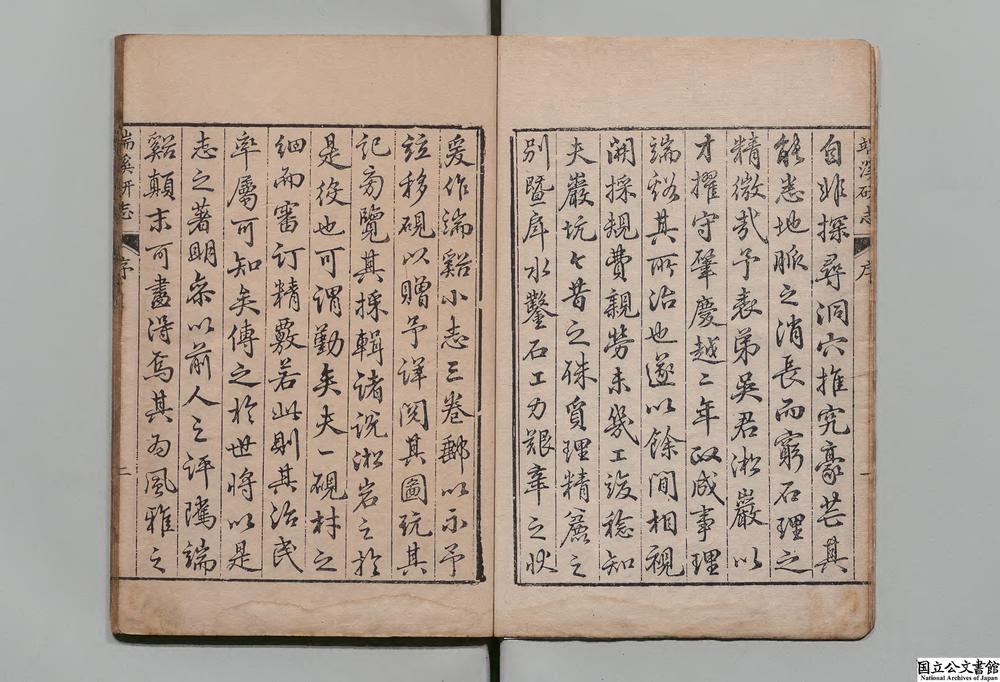 端溪硯志
序
一
自非探尋洞穴推究豪芒其
能悉地脈之消長而窮石理之
精微哉予表弟吳君淞巖以
才擢守肇慶越二年政成事理
端谿其所治也遂以餘間相視
開採規費親勞未幾工竣稔知
夫巖坑今昔之殊質理精麤之
別暨戽水鑿石工力艱辛之狀
爰作端谿小志三卷郵以示予
竝移硯以贈予詳閱其圖玩其
記旁覽其採輯諸說淞岩之於
是役也可謂勤矣夫一硯材之
細而審訂精覈若此則其治民
率屬可知矣傳之於世將以是
志之著明參以前人之評隲端
谿顛末可盡得焉其為風雅之
端溪硏志
序
二
国立公文書館
National Archives of Japan